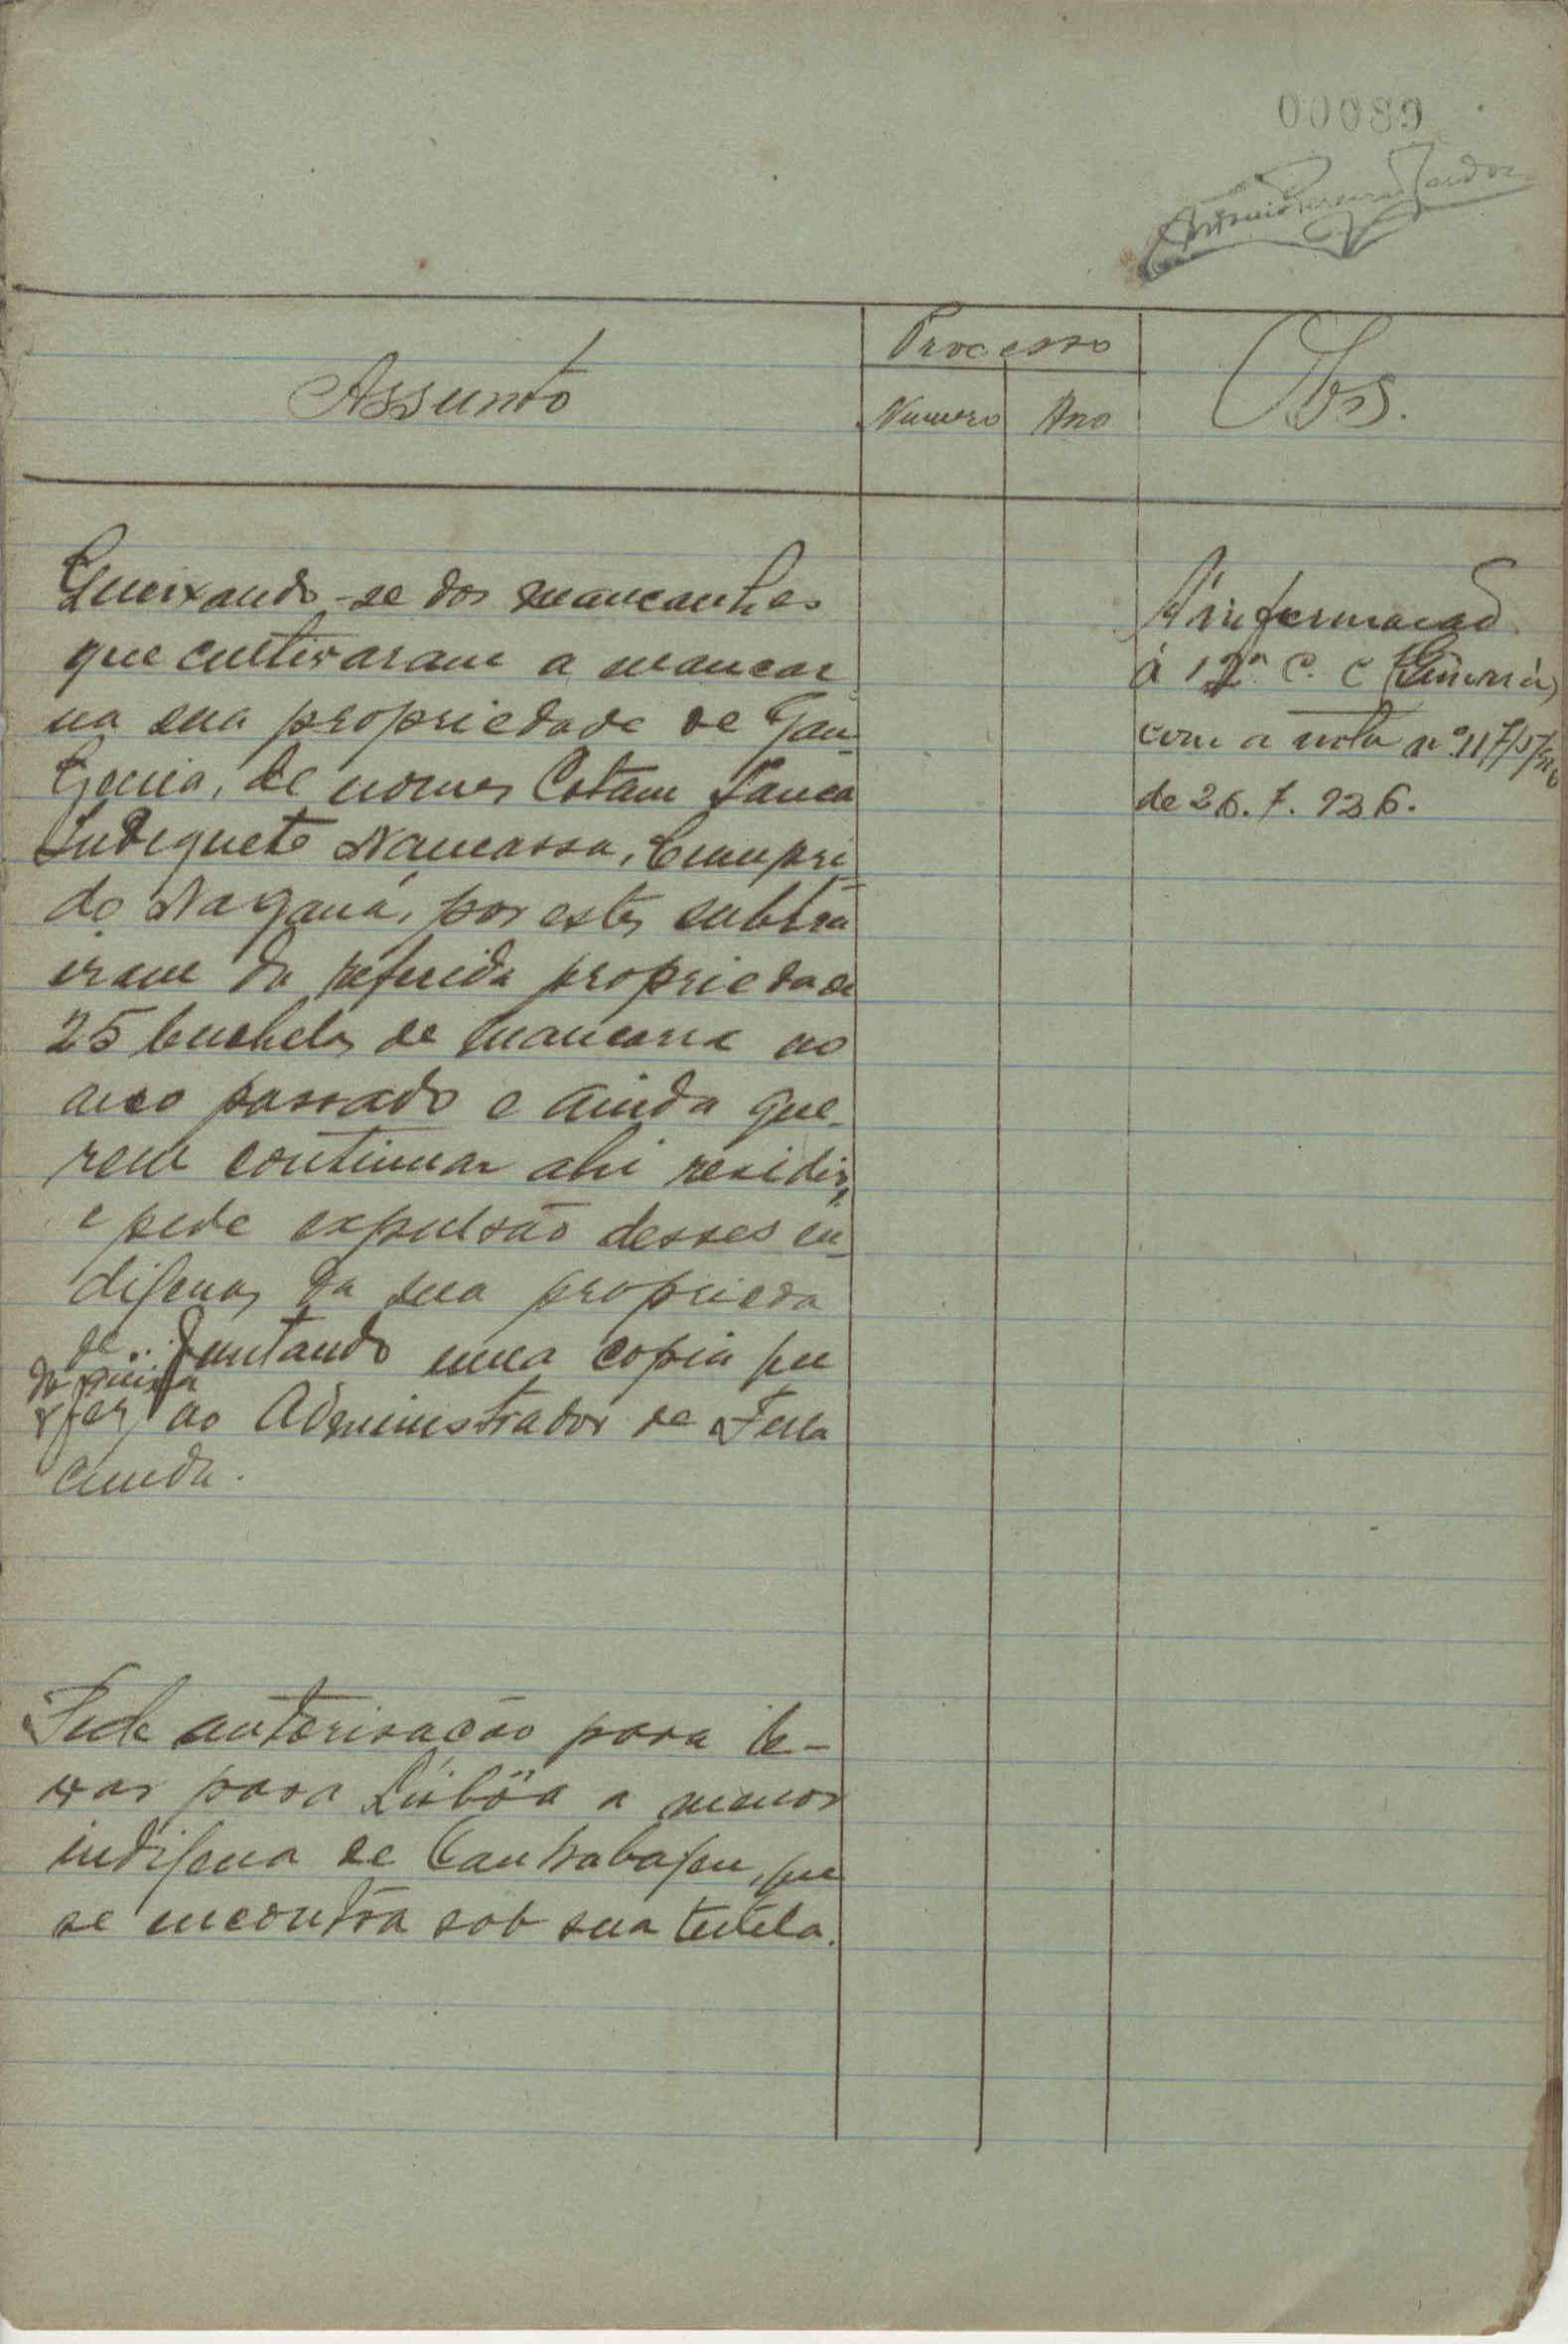 00089
Assunto
Processo
Numero Ano
Obs.
Queixando-se dos mancanhes
que cultivaram a mancar
na sua propriedade de Gan-
de nomes Cotam
Nancassa, Cumpri-
do Naganá, por estes subtra
iram da referida propriedade
25 bushels de mancarra no
ano passado e ainda que-
rem continuar ahi residir,
e pede expulsão desses in-
digenas da sua proprieda
de... Juntando uma copia que
da queixa
fez ao Administrador de Fula
cunda.
Á informação
á 12ª C. C
com a nota nº
de 26.7.936.
Pede autorisação para le-
var para Lisbôa a menor
indigena de que
se encontra sob sua tutela.